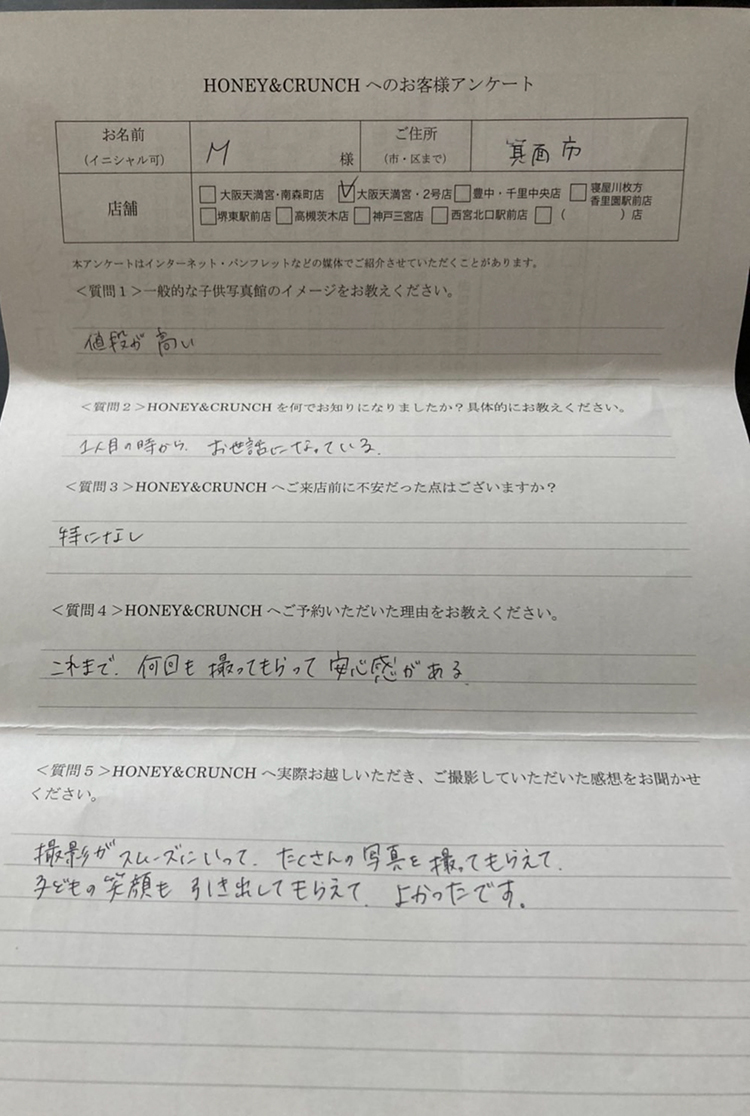 HONEY&CRUNCH へのお客様アンケート
お名前
(イニシャル可)
M 様
ご住所
(市・区まで)
箕面市
店舗
□大阪天満宮・南森町店 ☑大阪天満宮・2号店 □豊中・千里中央店 □寝屋川枚方香里園駅前店
□堺東駅前店 □高槻茨木店 □神戸三宮店 □西宮北口駅前店 □( )店
本アンケートはインターネット・パンフレットなどの媒体でご紹介させていただくことがあります。
<質問1>一般的な子供写真館のイメージをお教えください。
値段が高い
<質問2>HONEY&CRUNCH を何でお知りになりましたか?具体的にお教えください。
1人目の時から、お世話になっている。
<質問3>HONEY&CRUNCH へご来店前に不安だった点はございますか?
特になし
<質問4>HONEY&CRUNCH へご予約いただいた理由をお教えください。
これまで、何回も撮ってもらって安心感がある
<質問5>HONEY&CRUNCH へ実際お越しいただき、ご撮影していただいた感想をお聞かせ
ください。
撮影がスムーズにいって、たくさんの写真を撮ってもらえて、
子どもの笑顔も引き出してもらえて、よかったです。